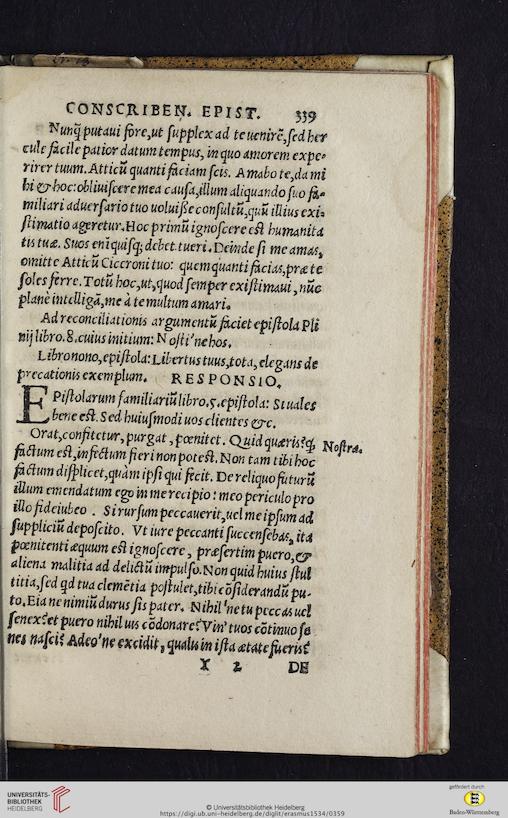 CONSCRIBEN. EPIST. 339
Nunq̃ putaui fore, ut supplex ad te uenirẽ, sed her
cule facile patior datum tempus, in quo amorem expe-
rirer tuum. Atticũ quanti faciam scis. Amabo te, da mi
hi & hoc: obliuiscere mea causa, illum aliquando suo fa-
miliari aduersario tuo uoluisse consultũ, quũ illius exi-
stimatio ageretur. Hoc primũ ignoscere est humanita
tis tuæ. Suos enĩ quisq; debet tueri. Deinde si me amas,
omitte Atticũ Ciceroni tuo: quem quanti facias, præ te
soles ferre. Totũ hoc, ut, quod semper existimaui, nũc
planè intelligã, me à te multum amari.
Ad reconciliationis argumentũ faciet epistola Pli
nij libro. 8. cuius initium: Nosti'ne hos.
Libro nono, epistola: Libertus tuus, tota, elegans de
precationis exemplum. RESPONSIO.
EPistolarum familiariũ libro. 5. epistola: Si uales
bene est. Sed huiusmodi uos clientes &c.
Orat, confitetur, purgat, pœnitet. Quid quæris? q̃ Nostra.
factum est, infectum fieri non potest. Non tam tibi hoc
factum displicet, quàm ipsi qui fecit. De reliquo futurũ
illum emendatum ego in me recipio: meo periculo pro
illo fideiubeo. Si rursum peccauerit, uel me ipsum ad
suppliciũ deposcito. Vt iure peccanti succensebas, ita
pœnitenti æquum est ignoscere, præsertim puero, &
aliena malitia ad delictũ impulso. Non quid huius stul
titia, sed qd tua clemẽtia postulet, tibi cõsiderandũ pu-
to. Eia ne nimiũ durus sis pater. Nihil'ne tu peccas uel
senex? et puero nihil uis cõdonare? Vin' tuos cõtinuo se
nes nasci? Adeo'ne excidit, qualis in ista ætate fueris?
Y 2 DE
UNIVERSITÄTS-
BIBLIOTHEK
HEIDELBERG
© Universitätsbibliothek Heidelberg
https://digi.ub.uni-heidelberg.de/diglit/erasmus1534/0359
gefördert durch
Baden-Württemberg